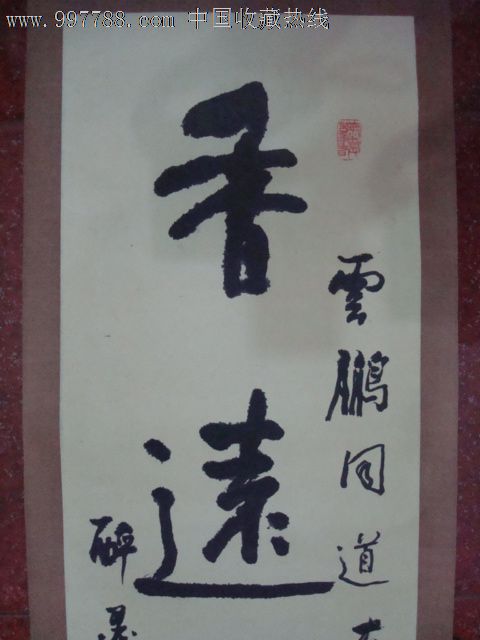 www.997788.com 中国收藏热线
雲鵬同道
香遠
醉墨